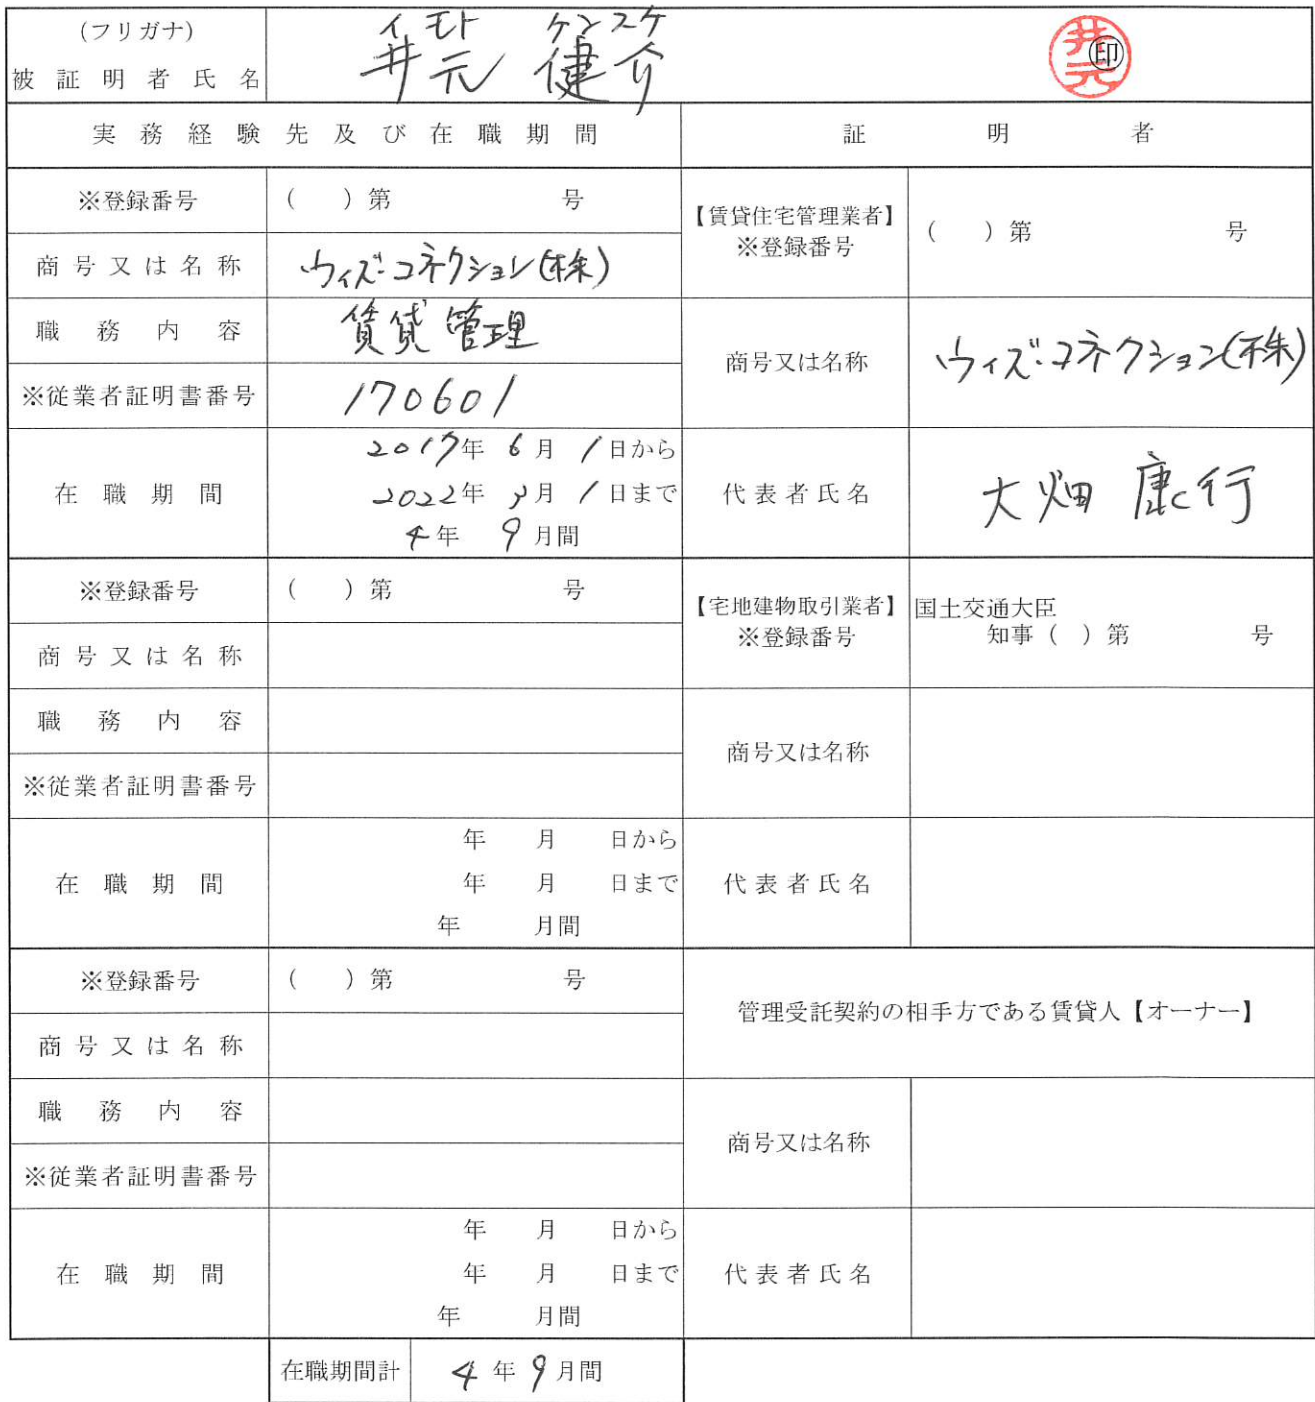 (フリガナ) イモト ケンスケ
被証明者氏名 井元 健介 井元 ㊞
実務経験先及び在職期間 証明者
※登録番号 ( ) 第 号 【賃貸住宅管理業者】 ※登録番号 ( ) 第 号
商号又は名称 ウィズ・コネクション(株)
職務内容 賃貸管理 商号又は名称 ウィズ・コネクション(株)
※従業者証明書番号 170601
在職期間 2017年 6月 1日から
2022年 3月 1日まで 代表者氏名 大畑 康行
4年 9月間
※登録番号 ( ) 第 号 【宅地建物取引業者】 ※登録番号 国土交通大臣
知事 ( ) 第 号
商号又は名称
職務内容 商号又は名称
※従業者証明書番号
在職期間 年 月 日から
年 月 日まで 代表者氏名
年 月間
※登録番号 ( ) 第 号 管理受託契約の相手方である賃貸人【オーナー】
商号又は名称
職務内容 商号又は名称
※従業者証明書番号
在職期間 年 月 日から
年 月 日まで 代表者氏名
年 月間
在職期間計 4年 9月間